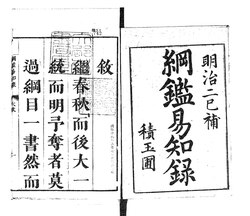 明治二己補
綱鑑易知録
積玉圃
敘
繼春秋而後大一
統而明予奪者莫
過綱目一書然而